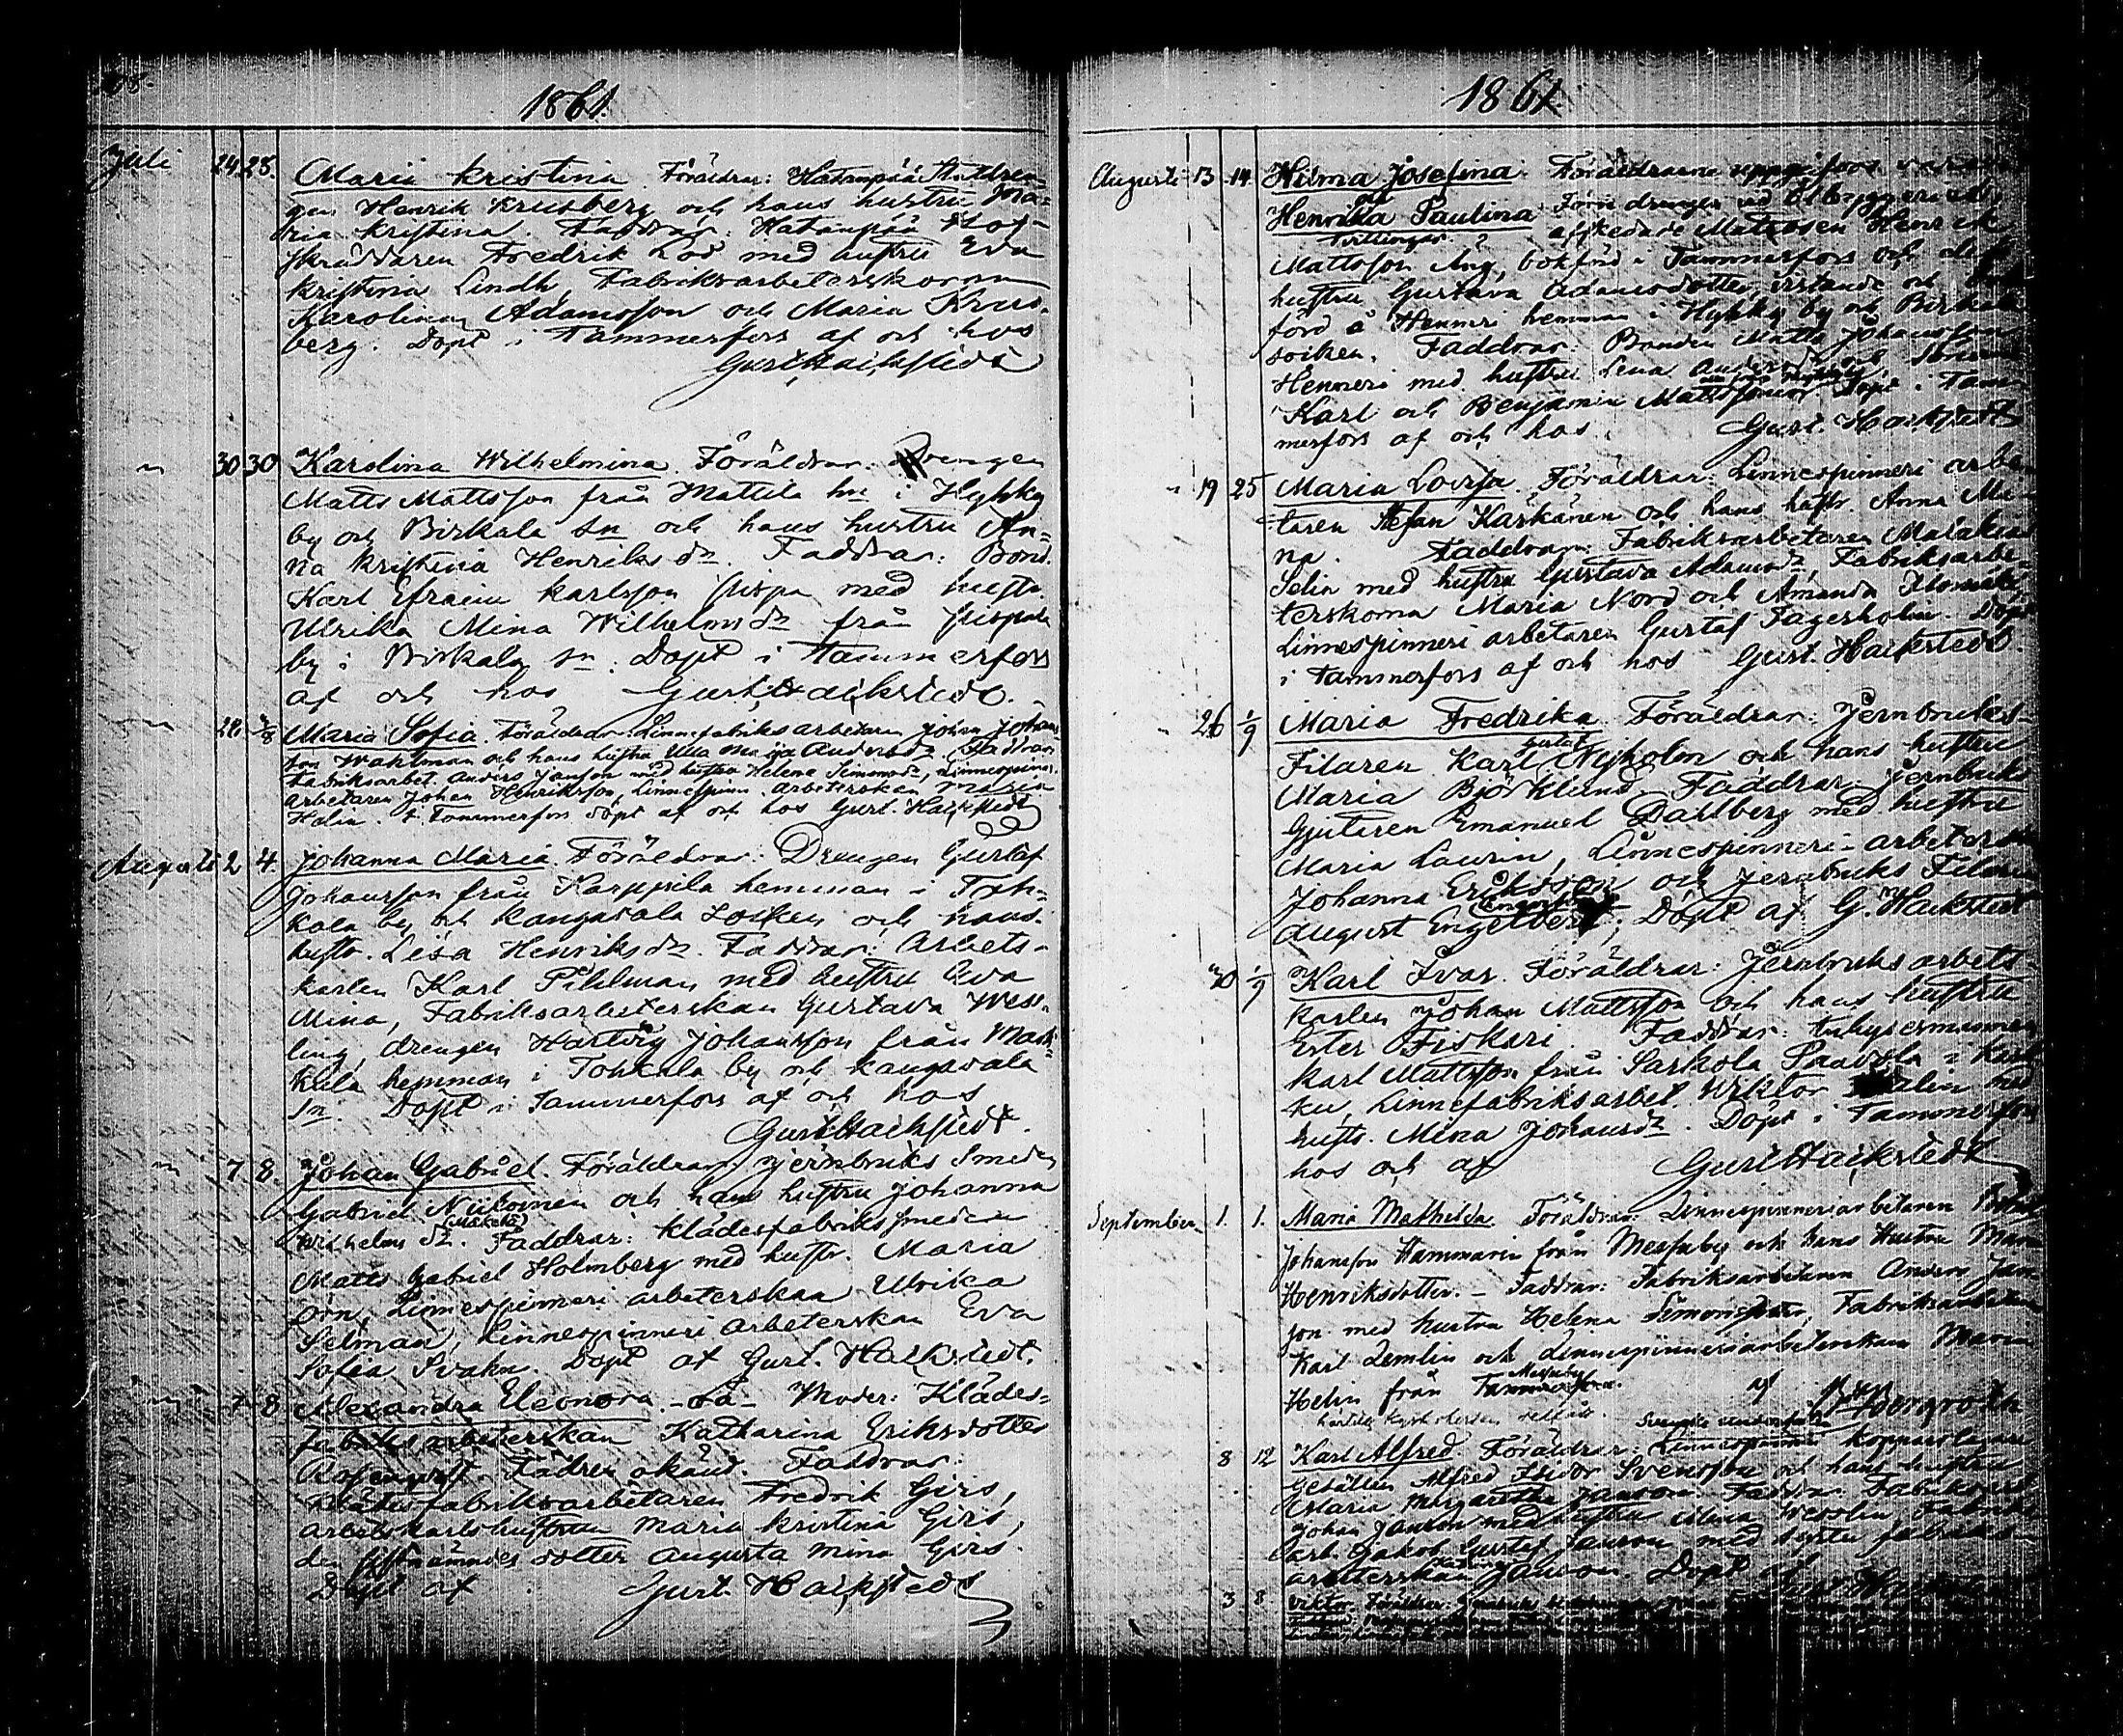 1861.
Juli 24 25. Maria Kristina. Föräldrar: Hatanpää
gen Henrik Krusberg och hans hustru Ma-
ria Kristina. Faddrar: Hatanpää Hof-
skräddaren Fredrik Löd med hustru Eva
Kristina Lindh, Fabriksarbeterskorna
Karolina Adamsson och Maria Krus-
berg. Döpt i Tammerfors af och hos
Gust. Hackstedt
" 30 30 Karolina Wilhelmina. Föräldrar: Drengen
Matts Mattsson från Mattila hn i Hykky
by och Birkala sn och hans hustru An-
na Kristina Henriks dr. Faddrar: Bond.
Karl Efraim Karlsson Pispa med hustr.
Ulrika Mina Wilhelms dr från Pispala
by i Birkala sn. Döpt i Tammerfors
af och hos Gust. Hackstedt.
" 28. 2/8 Maria Sofia. Föräldrar: Linnefabriksarbetaren Johan Johans-
son Wahlman och hans hustru Ulla Maija Anders dr. Faddrar:
Fabriksarbet. Anders Janson med hustru Helena Simons dr, Linnespinn.
arbetaren Johan Henriksson, Linnespinn. arbeterskan Maria
Helin. I Tammerfors döpt af och hos Gust. Hackstedt
Augusti 2 4. Johanna Maria. Föräldrar: Drengen Gustaf
Johansson från Karppila hemman i Toh-
kala by och Kangasala Socken och hans
hustr. Lisa Henriks dr. Faddrar: Arbets-
karlen Karl Pihlman med hustru Eva
Mina, Fabriksarbeterskan Gustava Wess-
ling, drengen Hartvig Johansson från Mach-
kala hemman i Tohkala by och Kangasala
sn. Döpt i Tammerfors af och hos
Gust. Hackstedt.
" 7. 8. Johan Gabriel. Föräldrar: Jernbruks Smeden
Gabriel Niikonen och hans hustru Johanna
(Mäkelä)
Wilhelms dr. Faddrar: Klädesfabriks smeden
Matts Gabriel Holmberg med hustr. Maria
Örn, Linnespinneri arbeterskan Ulrika
Selman, Linnespinneri arbeterskan Eva
Sofia Svahn. Döpt af Gust. Hackstedt.
" 7 8 Alexandra Eleonora. - oä - Moder: Klädes-
fabriksarbeterskan Katharina Eriksdotter
Rosenqvist. Fadren okänd. Faddrar:
Klädesfabriksarbetaren Fredrik Girs,
arbetskarlshustrun Maria Kristina Girs,
den sistnämndes dotter Augusta Mina Girs.
Döpt af Gust. Hackstedt
1861.
Augusti 13 14. Hilma Josefina Föräldrarne uppgifvos vara
och
Henrika Paulina förre drengen vid Ölbryggeriet,
Tvillingar. afskedade Matrosen Henrik
Mattsson Ang, bokförd i Tammerfors och dess
hustru Gustava Adamsdotter, vistande och bok-
förd å Henneri hemman i Hykky by och Birkala
socken. Faddrar: Bonden Matts Johansson
Henneri med hustru Lena Anders dr och
Karl och Benjamin Mattssöner. Döpt i Tam-
merfors af och hos Gust. Hackstedt
" 19 25 Maria Lovisa. Föräldrar: Linnespinneri arbe-
taren Stefan Kärkänen och hans hustr. Anna Ma-
na. Faddrar: Fabriksarbetaren Malakias
Selin med hustru Gustava Adams dr, Fabriksarbe-
terskorna Maria Nord och Amanda
Linnespinneri arbetaren Gustaf Fagerholm. Döpt
i Tammerfors af och hos Gust. Hackstedt.
" 26 1/9 Maria Fredrika. Föräldrar: Jernbruks-
Gustaf
Filaren Karl Nyholm och hans hustru
Maria Björklund. Faddrar: Jernbruks
Gjutaren Emanuel Dahlberg med hustru
Maria Laurin, Linnespinneri-arbeterskan
Johanna Eriksson och Jernbruks Filaren
August Engelbert; Döpt af G. Hackstedt
" 30 1/9 Karl Ivar. Föräldrar: Jernbruks arbets-
karlen Johan Mattsson och hans hustru
Ester Fiskari. Faddrar: Inhysesmannen
Karl Mattsson från Sarkola Paavola i Kark-
ku, Linnefabriksarbet. Wiktor med
hustr. Mina Johans dr. Döpt i Tammerfors
hos och af Gust. Hackstedt
September 1. 1. Maria Mathilda. Föräldrar: Linnespinneriarbetaren
Johansson Hammarin från Messuby och hans Hustru Maria
Henriksdotter. - Faddrar: Fabriksarbetaren Anders Jan-
son med hustru Helena Simonsdotter, Fabriksarbetaren
Karl Lemlin och Linnespinneriarbeterskan Maria
Messuby
Helin från Tammerfors. af Bergroth
8 12 Karl Alfred. Föräldrar: Svenske undersåten Kopparslagare
Gesällen Alfred Isidor Svensson och hans hustru
Maria Margaretha Janson. Faddrar: Fabriksarb.
Johan Janson med hustru Mina Wesslin, Fabriks
arb. Jakob Gustaf Janson med syster fabriks-
arbeterskan Janson. Döpt af Gust. Hackstedt
3 8 Viktor. Föräldrar: